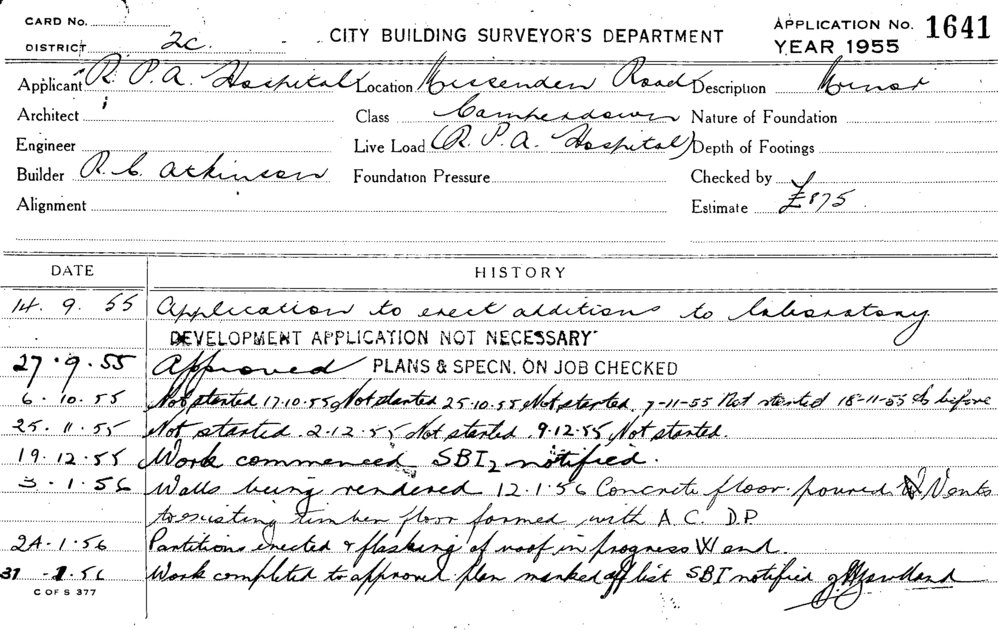 CARD No.
DISTRICT 2c.
CITY BUILDING SURVEYOR'S DEPARTMENT
APPLICATION No. 1641
YEAR 1955
Applicant R. P. A. Hospital Location Missenden Road Description Minor
Architect Class Camperdown Nature of Foundation
Engineer Live Load (R. P. A. Hospital) Depth of Footings
Builder R. C. Atkinson Foundation Pressure Checked by
Alignment Estimate £875
DATE HISTORY
14. 9. 55 Application to erect additions to laboratory
DEVELOPMENT APPLICATION NOT NECESSARY
27.9.55 Approved PLANS & SPECN. ON JOB CHECKED
6.10.55 Not started 17.10.55 Not started 25.10.55 Not started 7-11-55 Not started 18-11-55 As before
25.11.55 Not started 2.12.55 Not started 9.12.55 Not started.
19.12.55 Work commenced SBI2 notified.
3.1.56 Walls being rendered 12.1.56 Concrete floor poured. Vents
to existing timber floor formed with A.C. D.P.
24-1-56 Partitions erected & flashing of roof in progress W end.
31-1.56 Work completed to approved plan marked off list SBI notified
C OF S 377